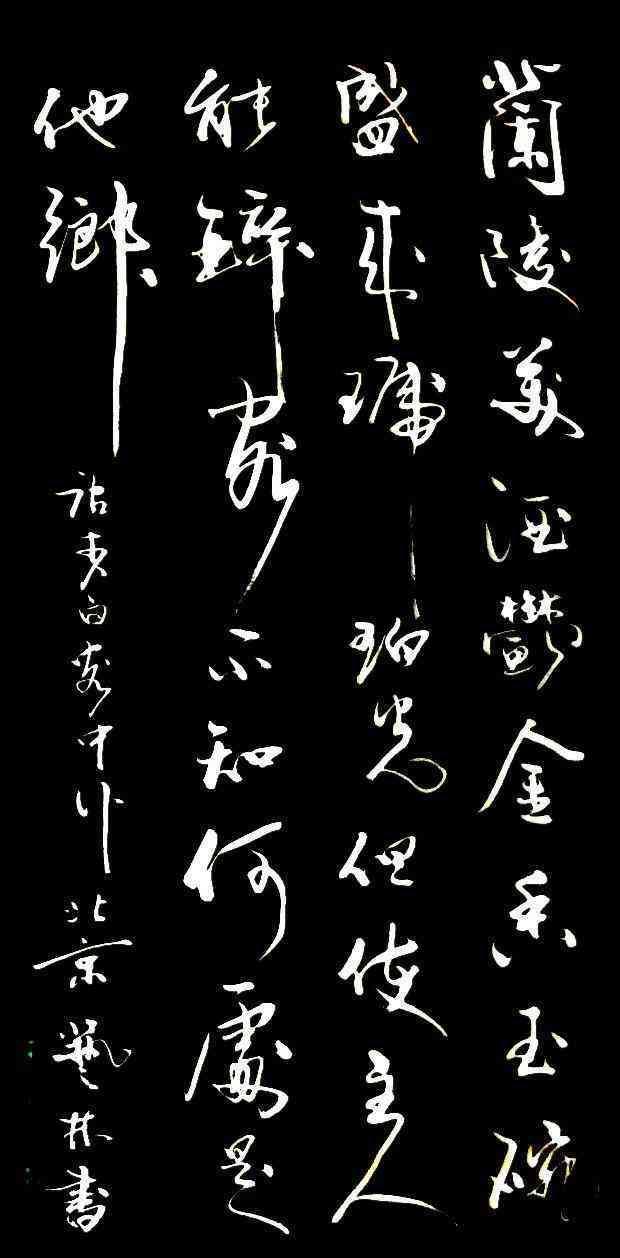 蘭陵美酒鬱金香玉碗
盛来琥珀光但使主人
能醉客不知何處是
他鄉
李白客中作北京藝林書